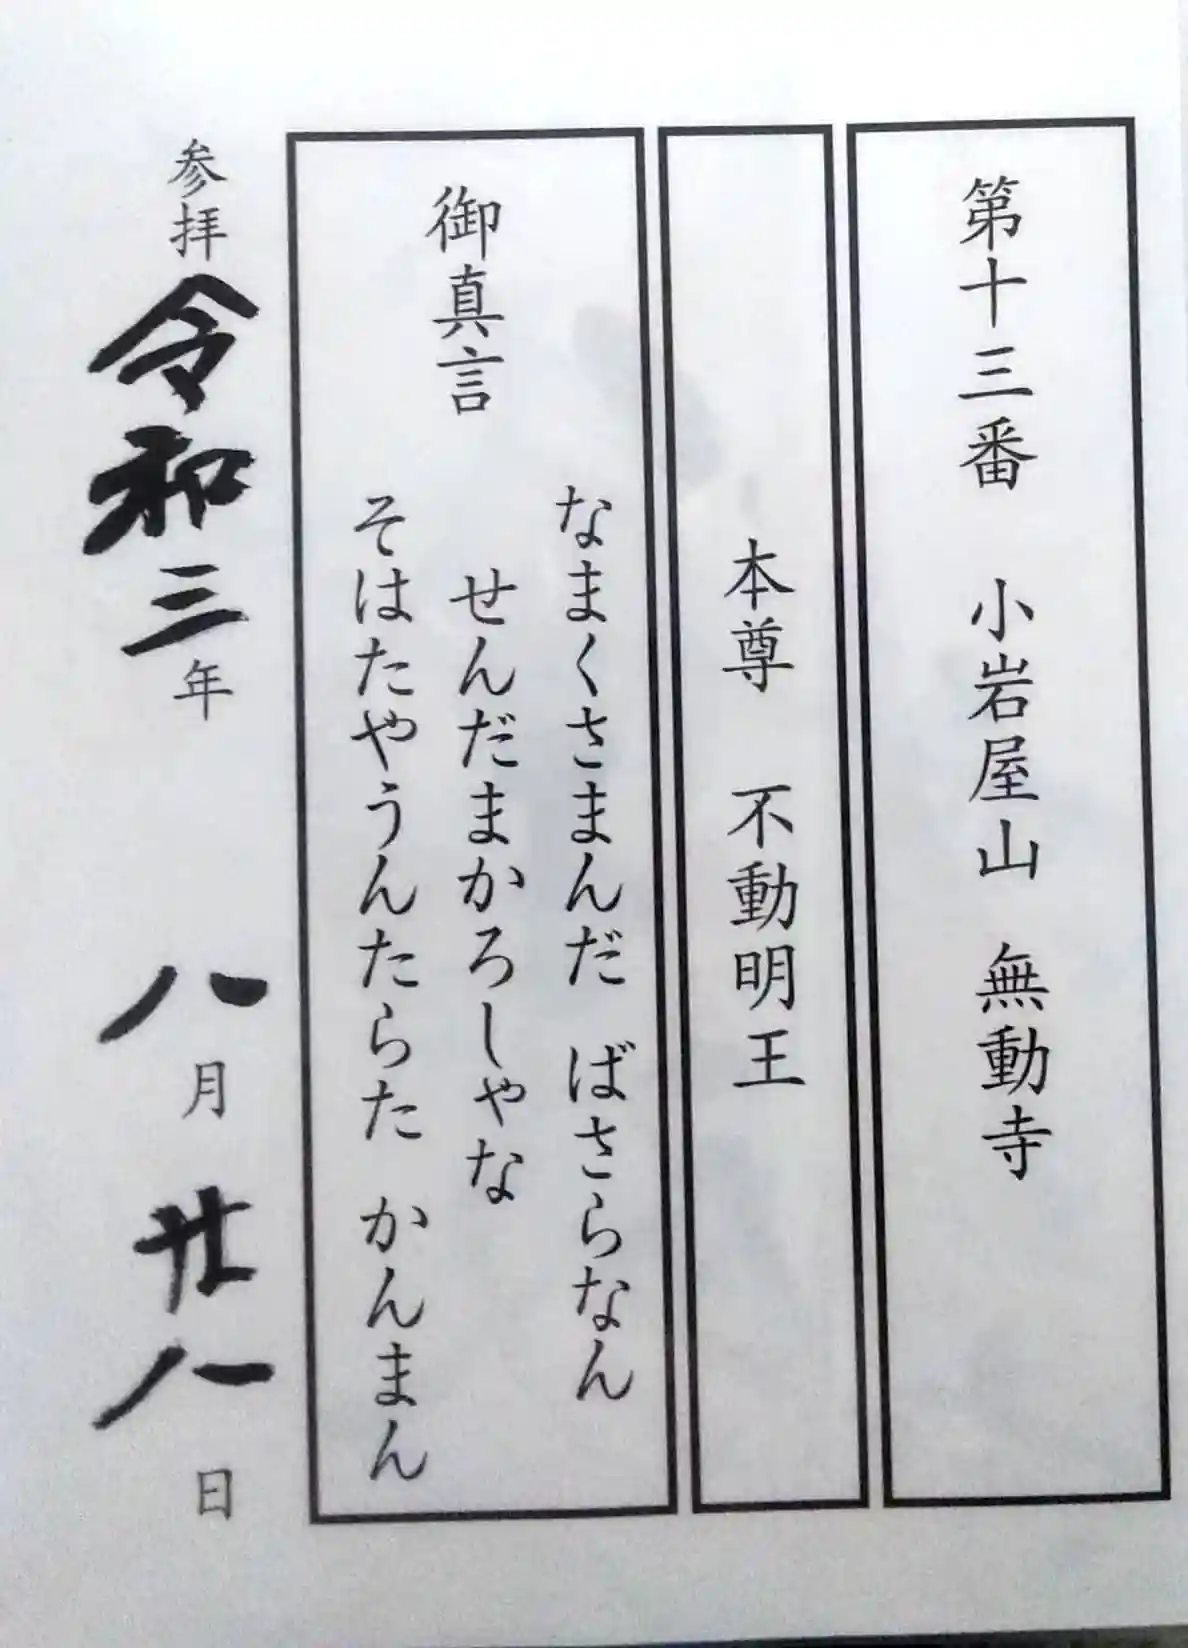 第十三番　小岩屋山　無動寺
本尊　不動明王
御真言
なまくさまんだ　ばさらなん
せんだまかろしゃな
そはたやうんたらた　かんまん
参拝令和三年　八月廿八日